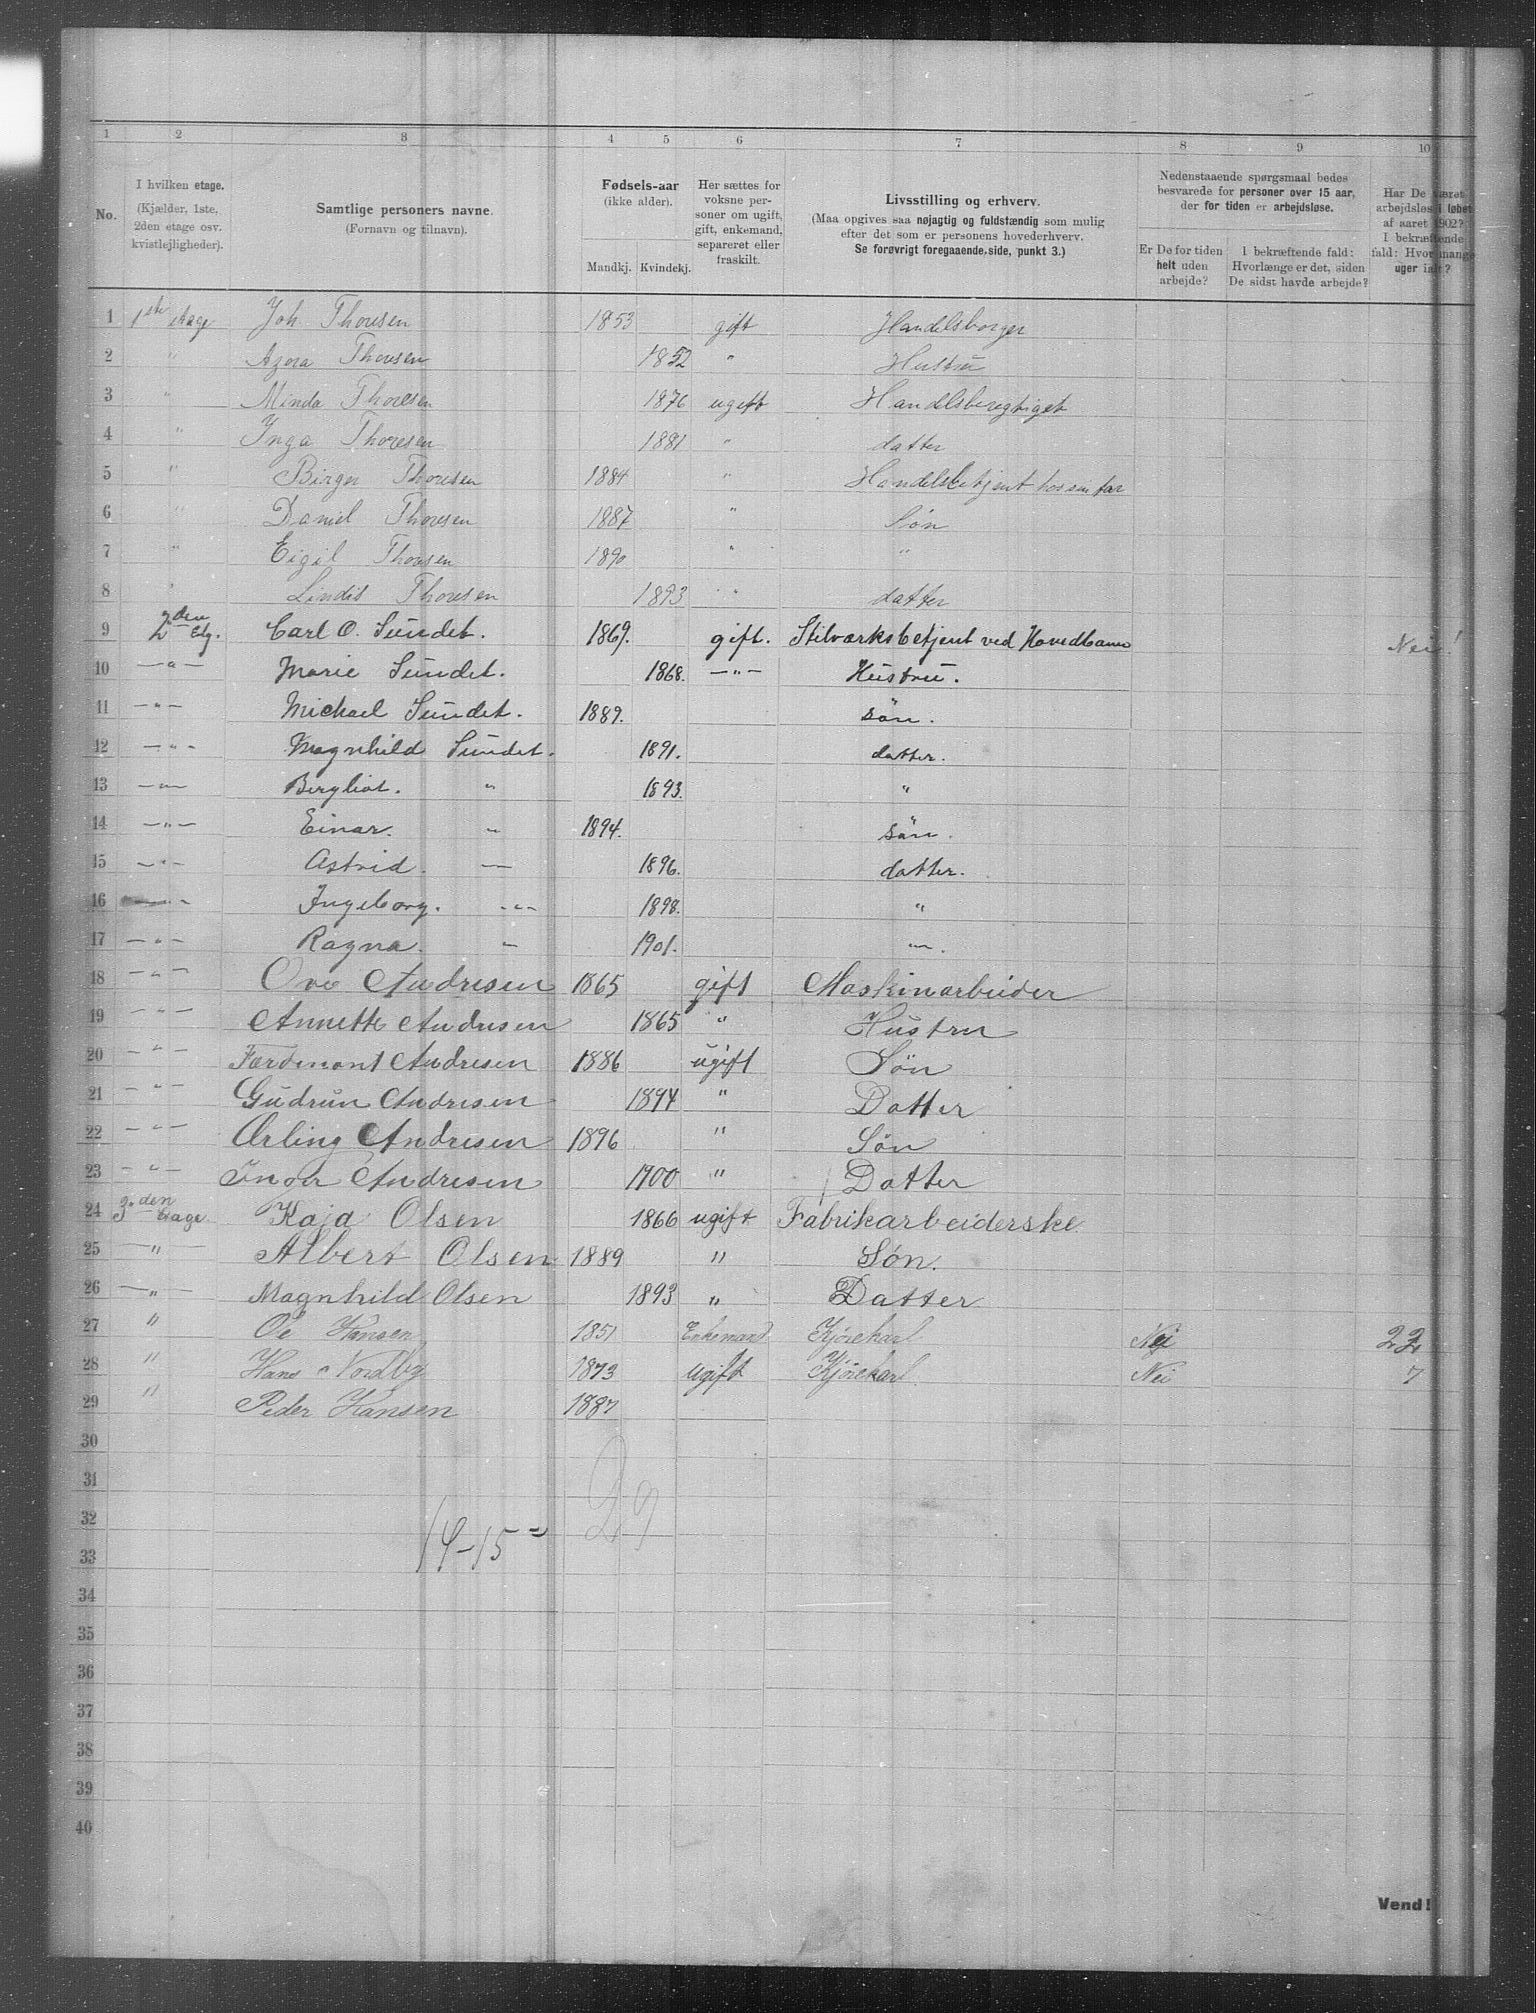 1 2 3 4 5 6 7 8 9 10
No.
I hvilken etage.
(Kjælder, 1ste,
2den etage osv.
kvistlejligheder).
Samtlige personers navne.
(Fornavn og tilnavn).
Fødsels-aar
(ikke alder).
Mandkj. Kvindekj.
Her sættes for
voksne per-
soner om ugift,
gift, enkemand,
separeret eller
fraskilt.
Livsstilling og erhverv.
(Maa opgives saa nøjagtig og fuldstændig som mulig
efter det som er personens hovederhverv.
Se forøvrigt foregaaende side, punkt 3.)
Nedenstaaende spørgsmaal bedes
besvarede for personer over 15 aar,
der for tiden er arbejdsløse.
Er De for tiden
helt uden
arbejde?
I bekræftende fald:
Hvorlænge er det, siden
De sidst havde arbejde?
Har De været
arbejdsløs i løbet
af aaret 1902?
I bekræftende
fald: Hvor mange
uger ialt?
1 1ste etage Joh. Thoresen 1853 gift Handelsborger
2 " Azora Thoresen 1852 " Hustru
3 " Minda Thoresen 1876 ugift Handelsberegtiget
4 " Inga Thoresen 1881 " datter
5 " Birger Thoresen 1884 " Handelsbetjent hos sin far
6 " Daniel Thoresen 1887 " Søn
7 " Eigil Thoresen 1890 " "
8 " Lindis Thoresen 1893 " datter
9 2den Etg. Carl O. Sundet. 1869. gift. Stilværksbetjent ved Hovedbanen Nei!
10 — " — Marie Sundet. 1868. — " — Hustru.
11 — " — Michael Sundet. 1889. søn.
12 — " — Magnhild Sundet. 1891. datter.
13 — " — Bergliot. " 1893. "
14 — " — Einar. " 1894. søn.
15 — " — Astrid. — 1896. datter.
16 — " — Ingeborg. — " — 1898. "
17 — " — Ragna. " 1901. — " —
18 — " — Ove Andresen 1865 gift Maskinarbeider
19 — " — Annette Andresen 1865 " Hustru
20 — " — Ferdinant Andresen 1886 ugift Søn
21 — " — Gudrun Andresen 1894 " Datter
22 — " — Erling Andresen 1896 " Søn
23 — " — Inger Andresen 1900 " Datter
24 3den Etage Kaja Olsen 1866 ugift Fabrikarbeiderske
25 — " — Albert Olsen 1889 " Søn.
26 — " — Magnhild Olsen 1893 " Datter
27 " Ole Hansen 1851 Enkemand Kjørekarl Nei 22
28 " Hans Nordby 1873 ugift Kjørekarl Nei 7
29 " Peder Hansen 1887
30
31
32
33
29
14-15 =
34
35
36
37
38
39
40
Vend!